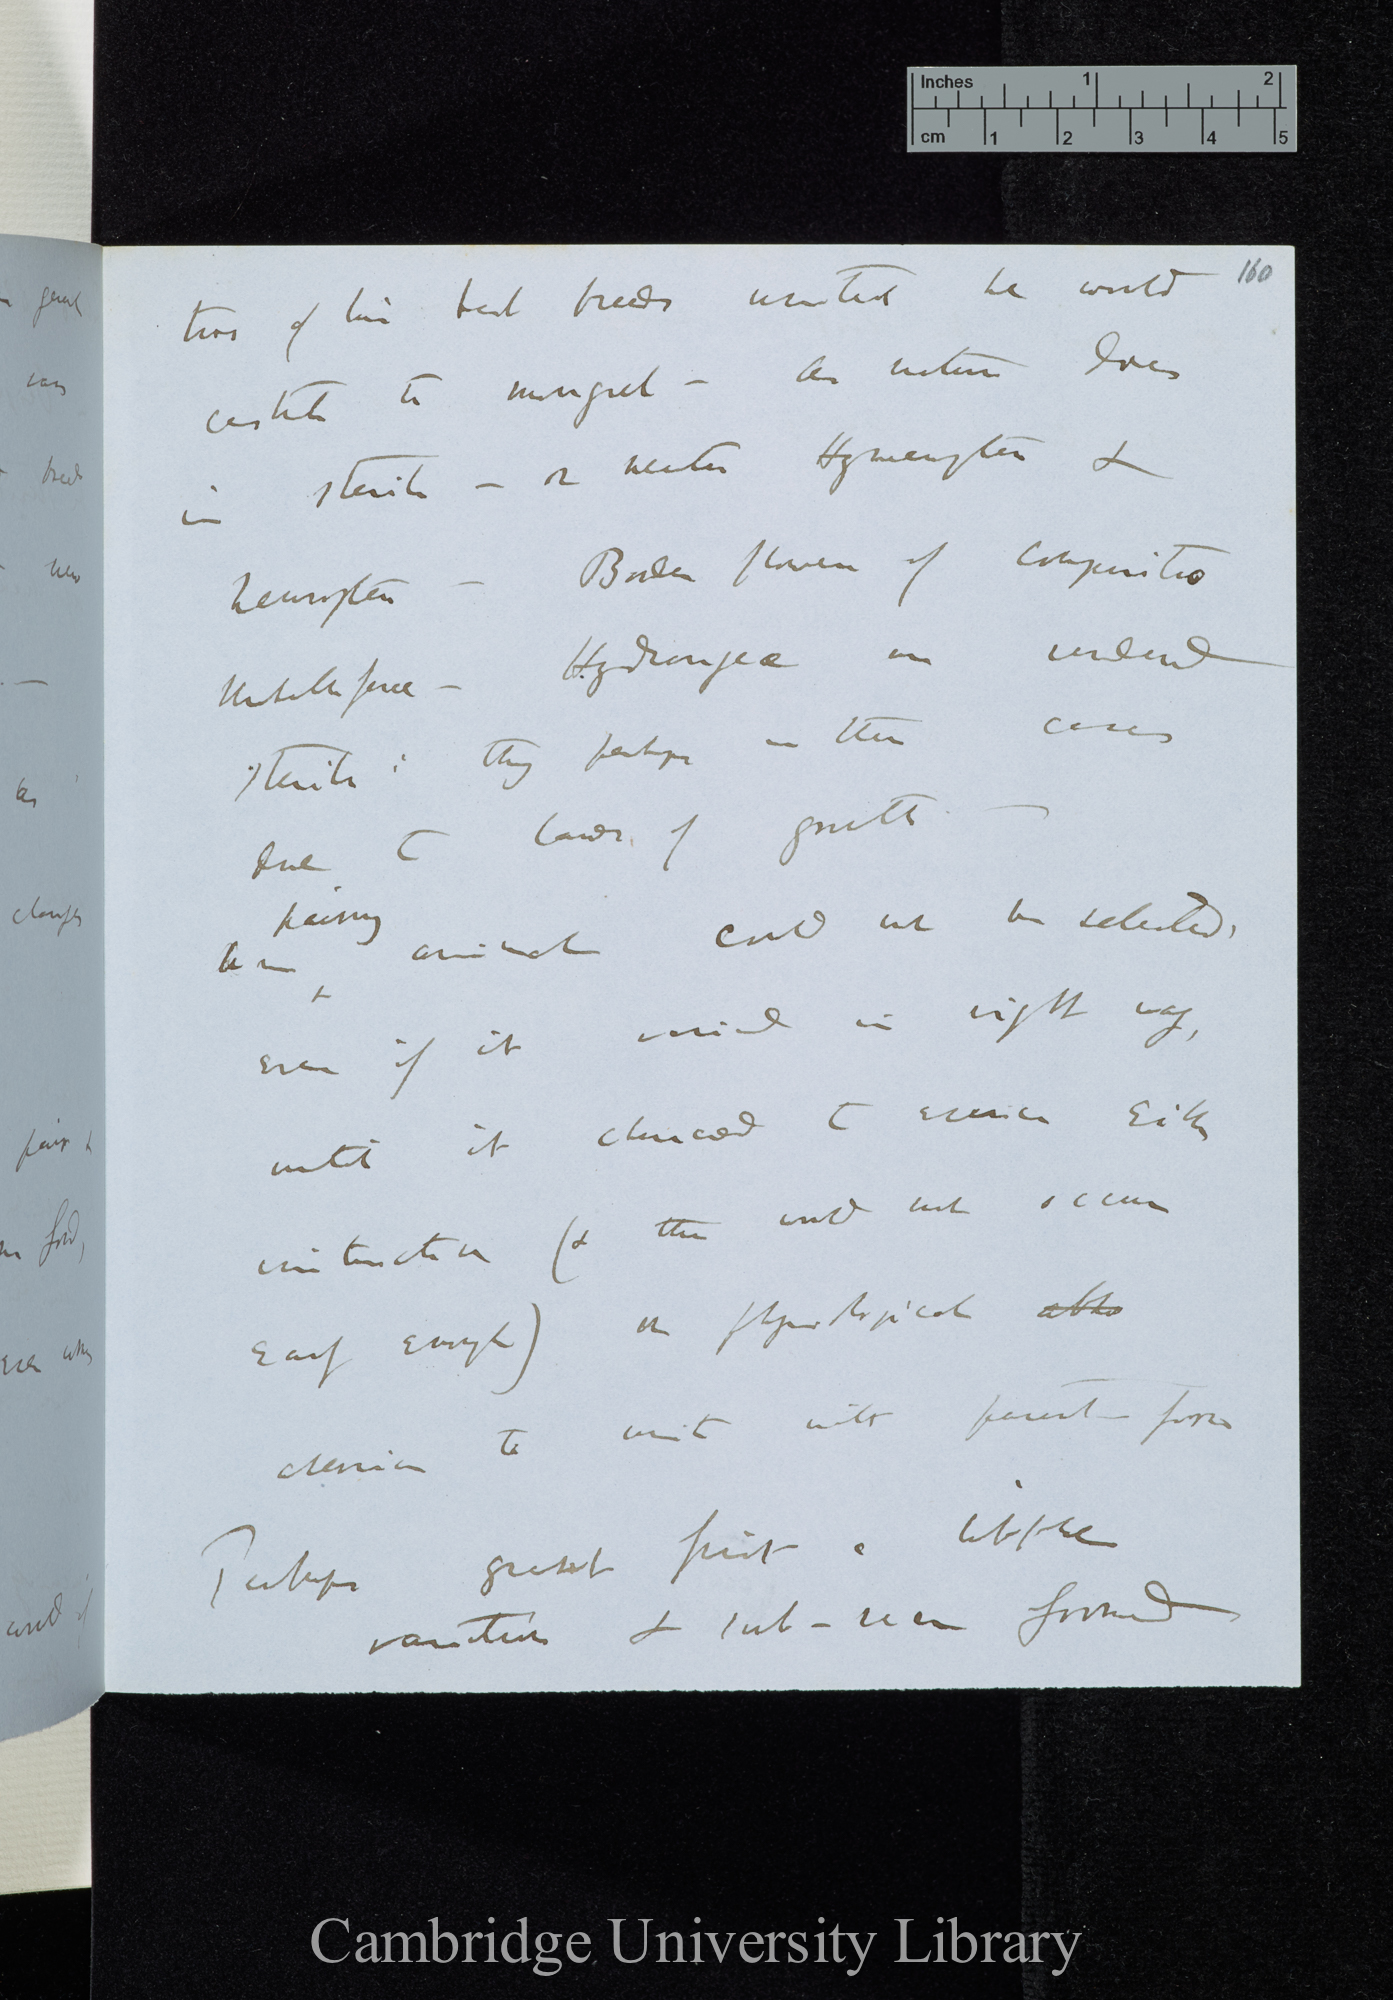 Inches 1 2
cm 1 2 3 4 5
160
two of his best breeds united he would
castrate the mongrel — as nature does
in sterile — or neuter Hymenoptera &
Neuroptera — Border flowers of compositæ
Umbelliferæ — Hydrangea are rendered
sterile: they perhaps in these cases
due to laws of growth —
pairing
animal could not be selected,
even if it varied in right way,
until it chanced to exercise either
instinctive (& this would not occur
early enough) or physiological
aversion to unite with parent-form
Perhaps greatest first a little
varieties & sub- formed
Cambridge University Library